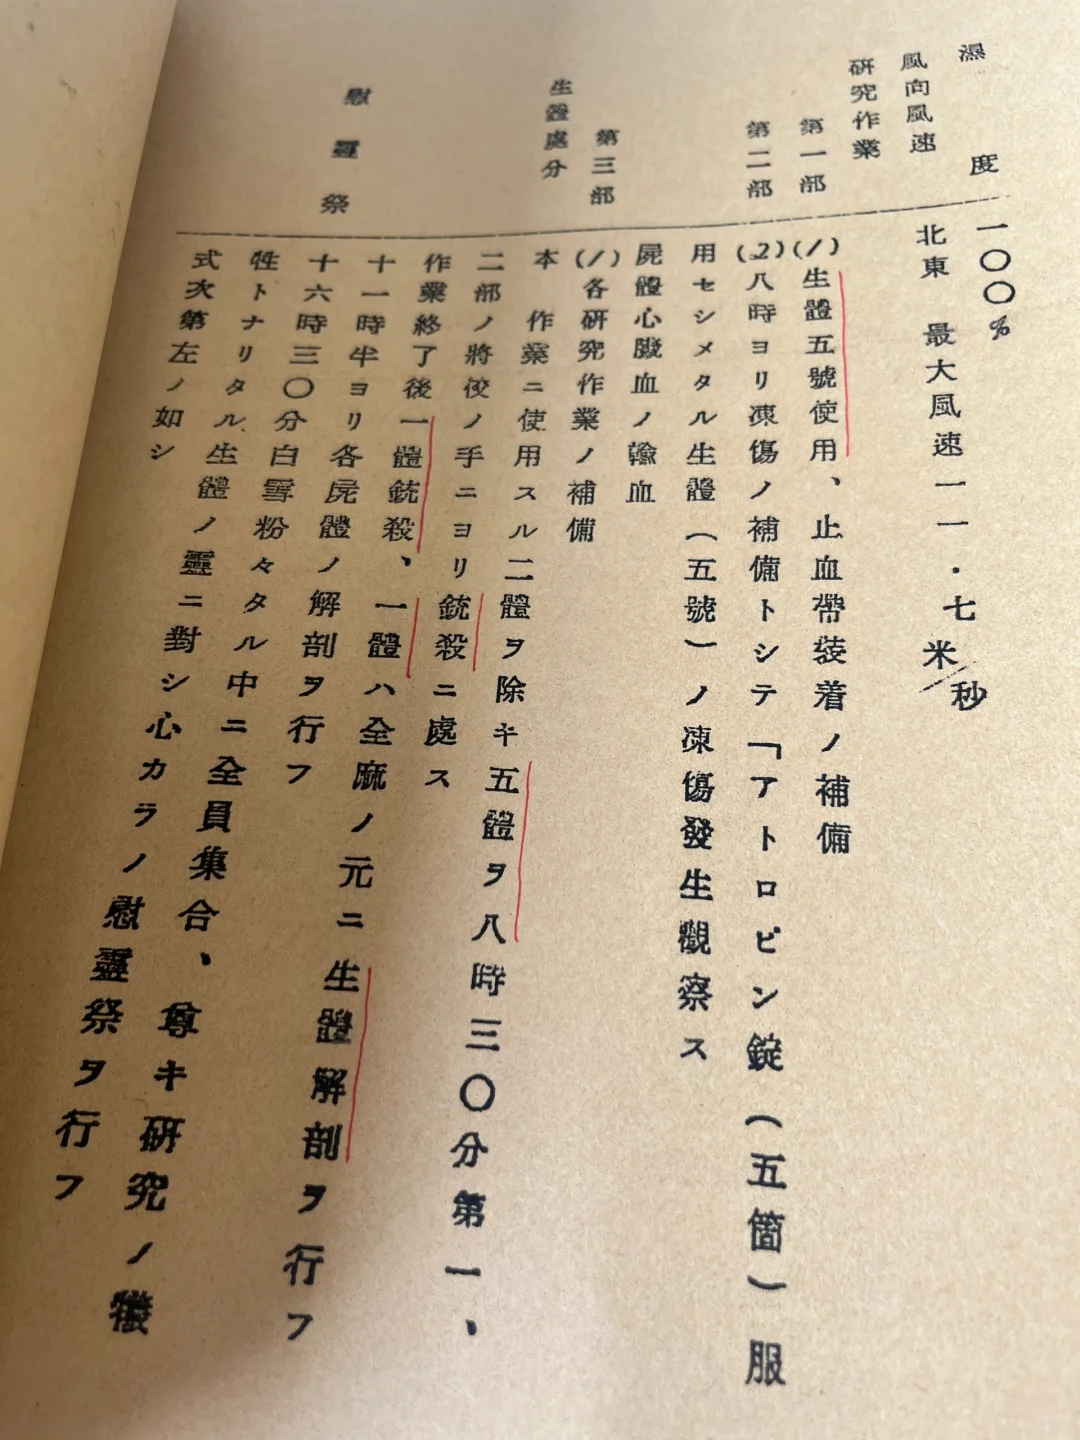 濕度　一〇〇%
風向風速　北東　最大風速一一・七米/秒
研究作業
第一部　(1)生體五號使用、止血帶裝着ノ補備
第二部　(2)八時ヨリ凍傷ノ補備トシテ「アトロピン錠(五箇)服
用セシメタル生體(五號)ノ凍傷發生觀察ス
屍體心臟血ノ輸血
第三部　(1)各研究作業ノ補備
生體處分　本作業ニ使用スル二體ヲ除キ五體ヲ八時三〇分第一、
二部ノ將校ノ手ニヨリ銃殺ニ處ス
作業終了後一體銃殺、一體ハ全麻ノ元ニ生體解剖ヲ行フ
十一時半ヨリ各屍體ノ解剖ヲ行フ
慰靈祭　十六時三〇分白雪粉々タル中ニ全員集合、尊キ硏究ノ犠
牲トナリタル生體ノ靈ニ對シ心カラノ慰靈祭ヲ行フ
式次第左ノ如シ